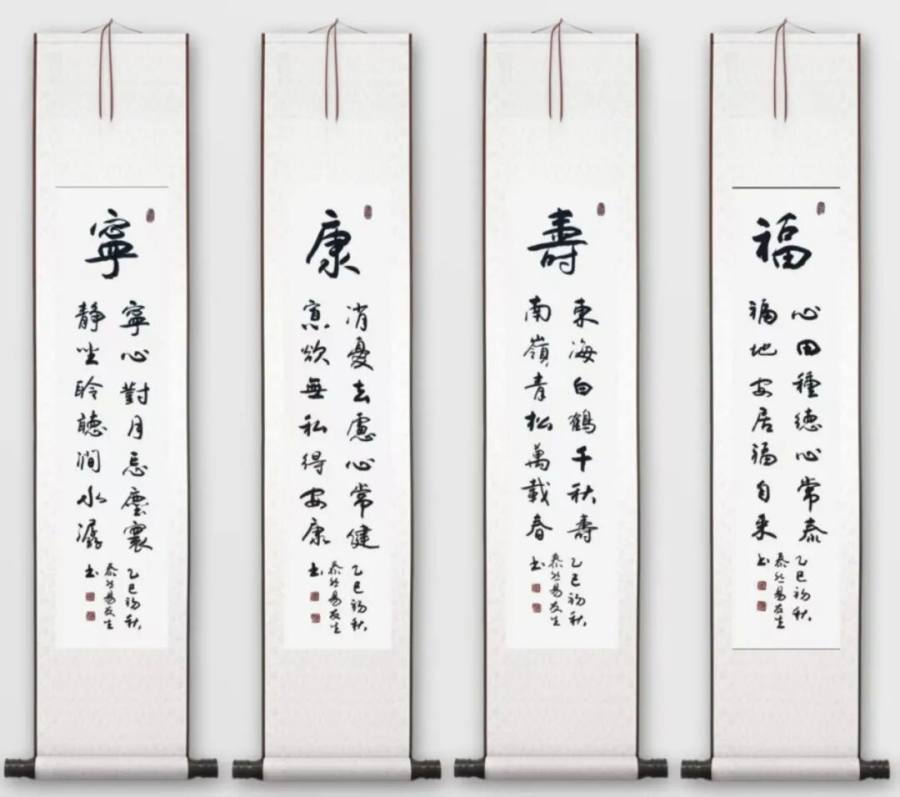 福
心田種德心常泰
福地安居福自來
乙巳初秋
易友生
书
壽
東海白鶴千秋壽
南嶺青松萬載春
乙巳初秋
易友生
书
康
消憂去慮心常健
寡欲無私得安康
乙巳初秋
易友生
书
寧
寧心對月忘塵寰
靜坐聆聽澗水潺
乙巳初秋
易友生
书